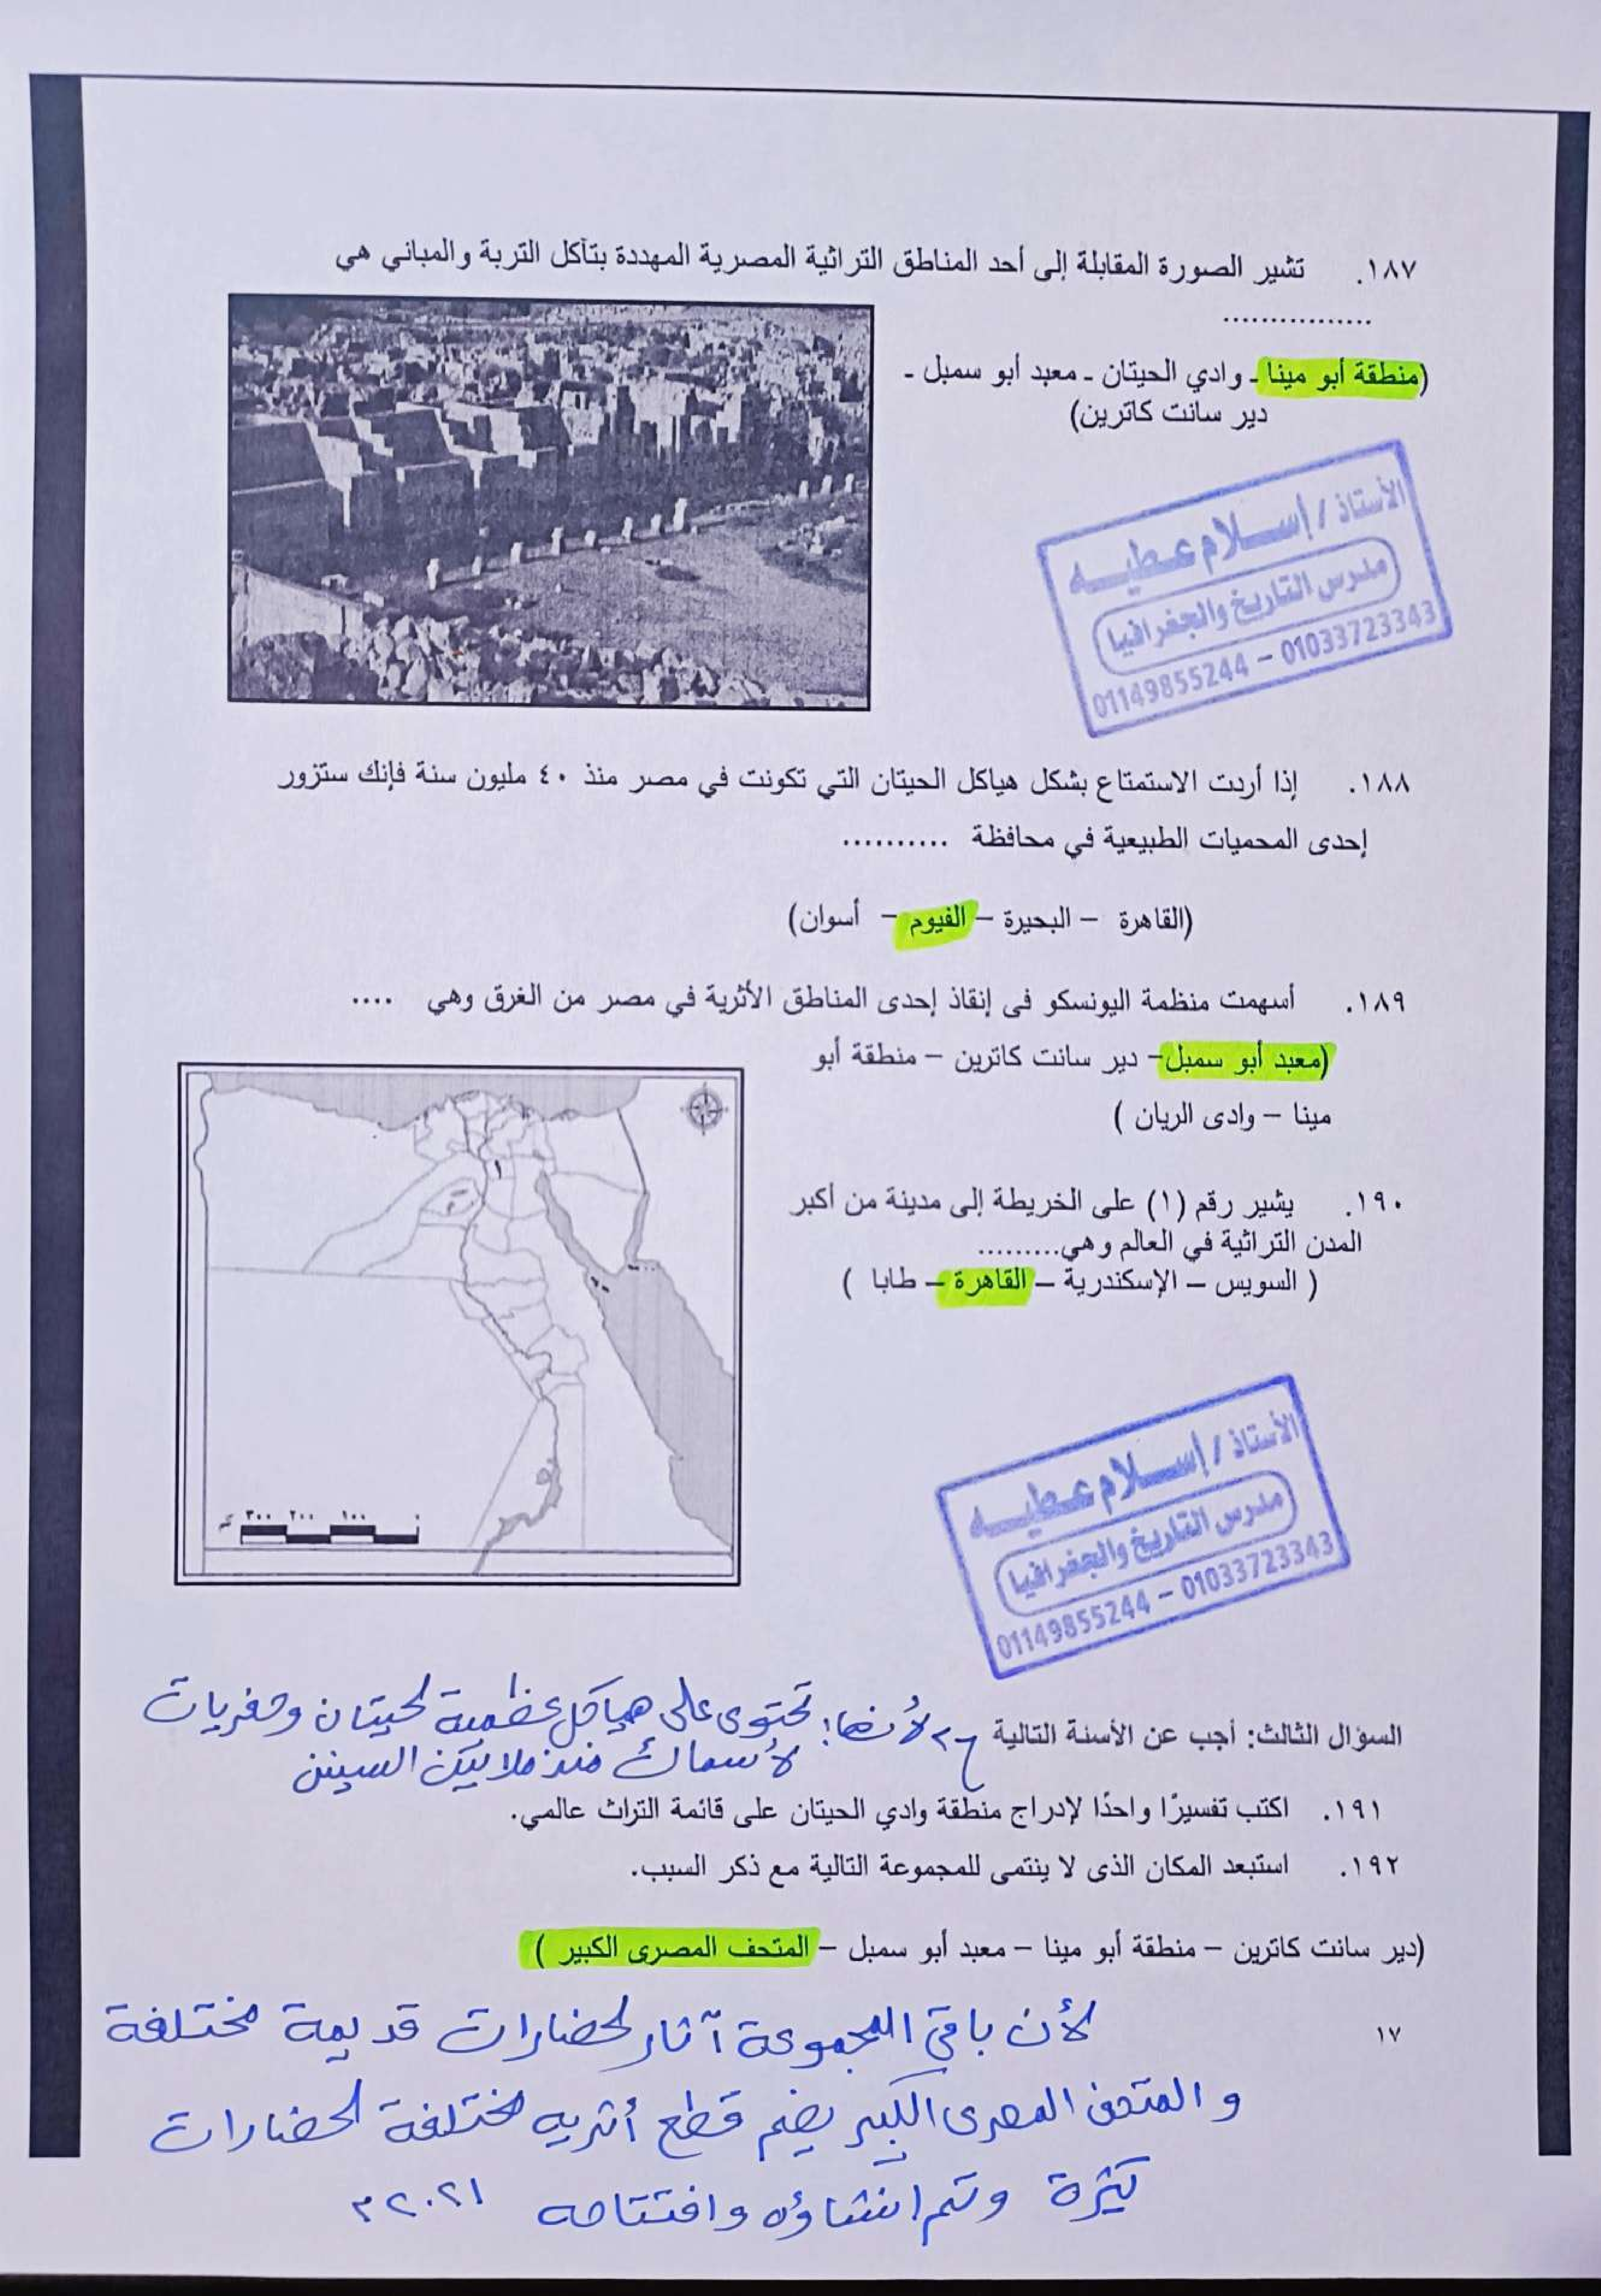 ١٨٧. تشير الصورة المقابلة إلى أحد المناطق التراثية المصرية المهددة بتآكل التربة والمباني هي
................
(منطقة أبو مينا - وادي الحيتان - معبد أبو سمبل -
دير سانت كاترين)
الأستاذ / إسلام عطيه
مدرس التاريخ والجغرافيا
01149855244 – 01033723343
١٨٨. إذا أردت الاستمتاع بشكل هياكل الحيتان التي تكونت في مصر منذ ٤٠ مليون سنة فإنك ستزور
إحدى المحميات الطبيعية في محافظة ..........
(القاهرة – البحيرة – الفيوم – أسوان)
١٨٩. أسهمت منظمة اليونسكو فى إنقاذ إحدى المناطق الأثرية في مصر من الغرق وهي ....
(معبد أبو سمبل – دير سانت كاترين – منطقة أبو
مينا – وادى الريان )
١٩٠. يشير رقم (١) على الخريطة إلى مدينة من أكبر
المدن التراثية في العالم وهي.........
( السويس – الإسكندرية – القاهرة – طابا )
١
٣٠٠ ٢٠٠ ١٠٠ ٠
الأستاذ / إسلام عطيه
مدرس التاريخ والجغرافيا
01149855244 – 01033723343
السؤال الثالث: أجب عن الأسئة التالية
لأنها: تحتوى على هياكل عظمية لحيتان وحفريات
لأسماك منذ ملايين السنين
١٩١. اكتب تفسيرًا واحدًا لإدراج منطقة وادي الحيتان على قائمة التراث عالمي.
١٩٢. استبعد المكان الذى لا ينتمى للمجموعة التالية مع ذكر السبب.
(دير سانت كاترين – منطقة أبو مينا – معبد أبو سمبل – المتحف المصرى الكبير )
١٧
لأن باقي المجموعة آثار لحضارات قديمة مختلفة
و المتحف المصرى الكبير يضم قطع أثريه مختلفة لحضارات
كثيرة وتم انشاؤه وافتتاحه ٢٠٢١م